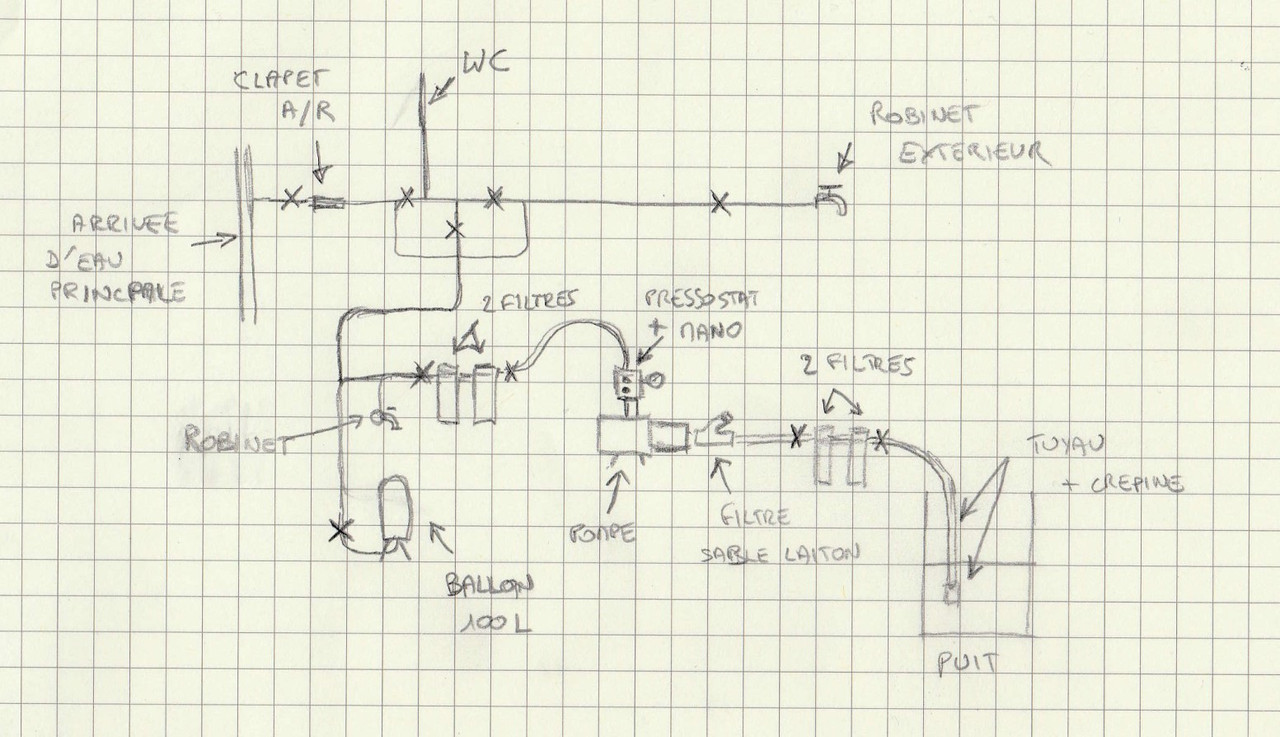 WC
CLAPET
A/R
ROBINET
EXTERIEUR
ARRIVEE
D'EAU
PRINCPALE
2 FILTRES
PRESSOSTAT
+ MANO
2 FILTRES
ROBINET
TUYAU
+ CREPINE
POMPE
FILTRE
SABLE LAITON
BALLON
100L
PUIT